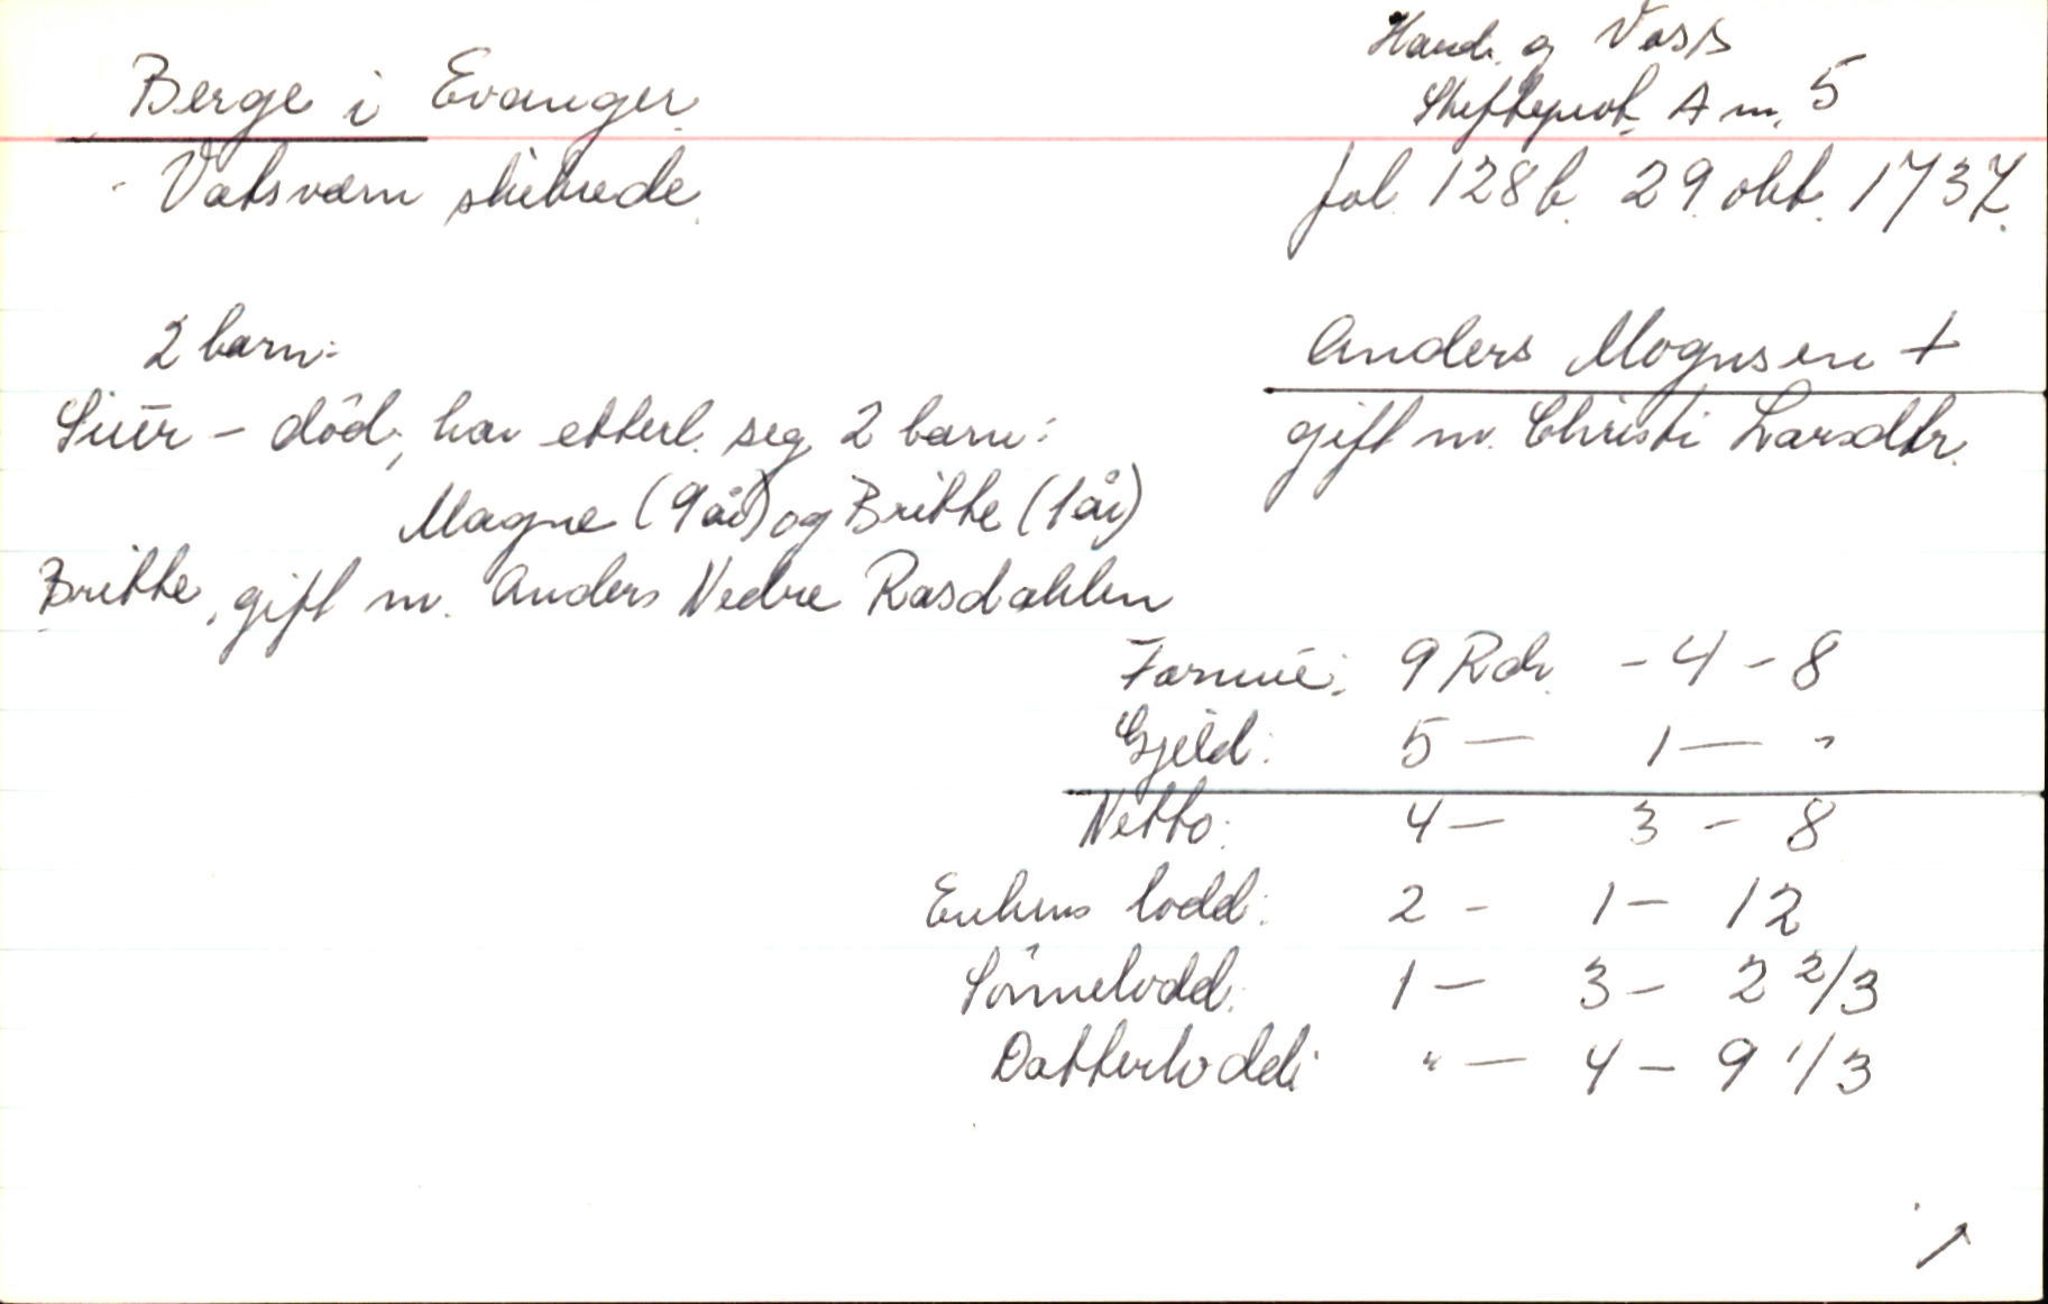 Berge i Evanger
Hard. og Voss
Skifteprot. A nr. 5
Vatsværn skibrede
fol. 128 b. 29. okt. 1737.
2 barn:
Anders Mognsen +
Siur - död, har etterl. seg 2 barn:
gift m. Christi Larsdtr.
Magne (9 år) og Britte (1 år)
Britte, gift m. Anders Nedre Rasdahlen
Formue: 9 Rdr. - 4 - 8
Gjeld: 5 — 1 — "
Netto: 4 — 3 - 8
Enkens lodd: 2 - 1 - 12
Sönnelodd: 1 - 3 - 2 2/3
Datterlodd: " — 4 - 9 1/3